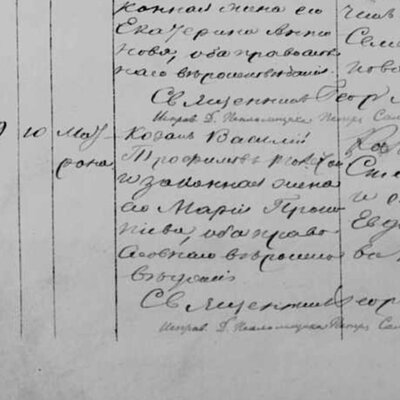 конная жена его
Екатерина Анто
новя, оба православ
наго вероисповедания.
Священник Георг
Исправ. Д. Псаломщика Петръ Сам
10 Мат
рона
Козакъ Василий
Трофимовъ
и законная жена
его Мария Проко
пиева, оба право
славнаго вероиспо
ведания
Священник Геор
Исправ. Д. Псаломщика Петръ Сам
чинъ
Сем
ново
Ко
Сте
и
Евд
ва